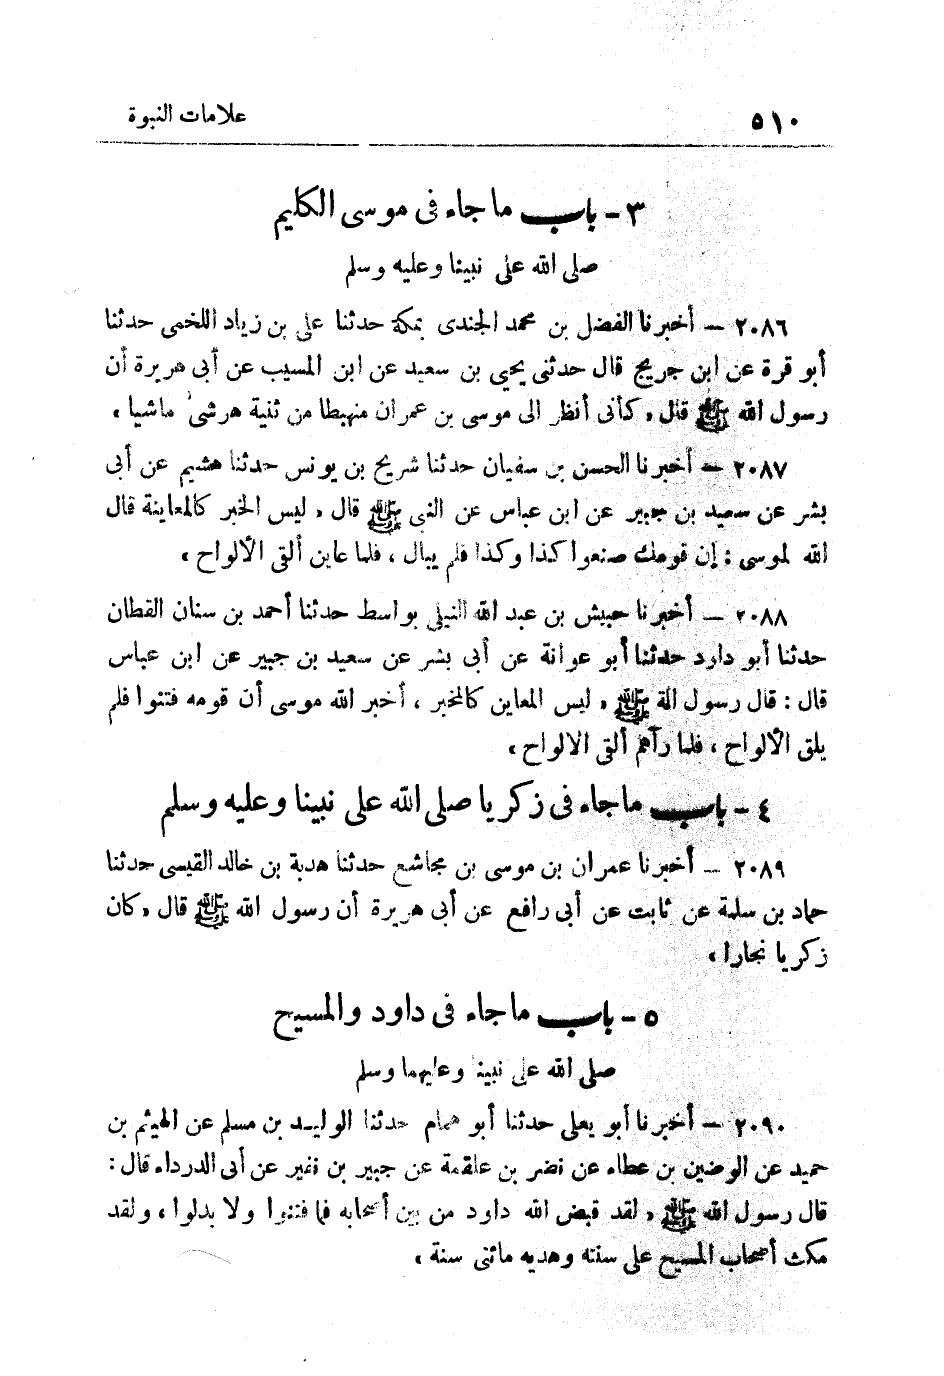 ٥١٠ علامات النبوة
٣ - باب ما جاء فى موسى الكليم
صلى الله على نبينا وعليه وسلم
٢٠٨٦ – أخبرنا الفضل بن محمد الجندى بمكة حدثنا على بن زياد اللخمى حدثنا
أبو قرة عن ابن جريج قال حدثنى يحيى بن سعيد عن ابن المسيب عن أبى هريرة أن
رسول الله ﷺ قال « كأنى أنظر الى موسى بن عمران منهبطا من ثنية هرشى ماشيا »
٢٠٨٧ – أخبرنا الحسن بن سفيان حدثنا شريح بن يونس حدثنا هشيم عن أبى
بشر عن سعيد بن جبير عن ابن عباس عن النبى ﷺ قال « ليس الخبر كالمعاينة قال
الله لموسى : إن قومك صنعوا كذا وكذا فلم يبال ، فلما عاين ألقى الألواح »
٢٠٨٨ – أخبرنا حبيش بن عبد الله النيلى بواسط حدثنا أحمد بن سنان القطان
حدثنا أبو داود حدثنا أبو عوانة عن أبى بشر عن سعيد بن جبير عن ابن عباس
قال : قال رسول الله ﷺ « ليس المعاين كالمخبر ، أخبر الله موسى أن قومه فتنوا فلم
يلق الألواح ، فلما رآهم ألقى الالواح »
٤ - باب ما جاء فى زكريا صلى الله على نبينا وعليه وسلم
٢٠٨٩ – أخبرنا عمران بن موسى بن مجاشع حدثنا هدبة بن خالد القيسى حدثنا
حماد بن سلمة عن ثابت عن أبى رافع عن أبى هريرة أن رسول الله ﷺ قال « كان
زكريا نجارا »
٥ - باب ما جاء فى داود والمسيح
صلى الله على نبينا وعليهما وسلم
٢٠٩٠ – أخبرنا أبو يعلى حدثنا أبو همام حدثنا الوليد بن مسلم عن الهيثم بن
حميد عن الوضين بن عطاء عن نضر بن علقمة عن جبير بن نفير عن أبى الدرداء قال :
قال رسول الله ﷺ « لقد قبض الله داود من بين أصحابه فما فتنوا ولا بدلوا ، ولقد
مكث أصحاب المسيح على سنته وهديه مائتى سنة »